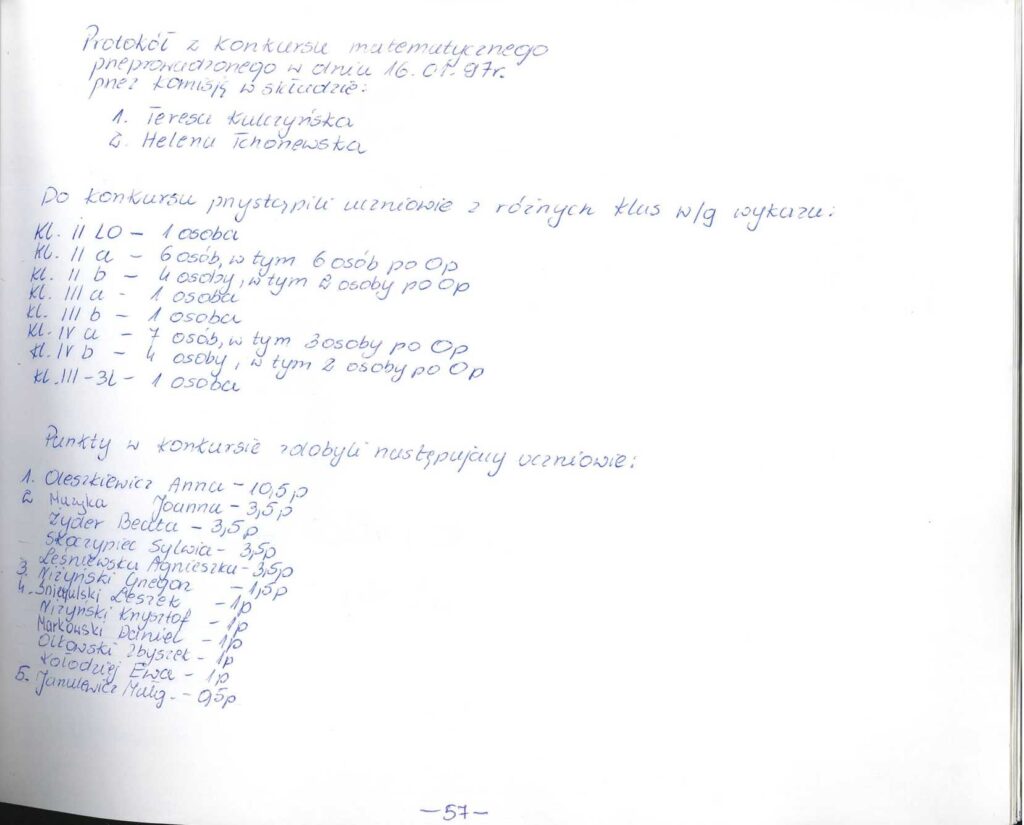 Protokół z konkursu matematycznego
przeprowadzonego w dniu 16.01.97r.
przez komisję w składzie:
1. Teresa Kulczyńska
2. Helena Tchorzewska
Do konkursu przystąpili uczniowie z różnych klas w/g wykazu:
Kl. II LO – 1 osoba
Kl. II a – 6 osób, w tym 6 osób po Op
Kl. II b – 4 osoby, w tym 2 osoby po Op
Kl. III a – 1 osoba
Kl. III b – 1 osoba
Kl. IV a – 7 osób, w tym 3 osoby po Op
Kl. IV b – 4 osoby, w tym 2 osoby po Op
Kl. III-3L – 1 osoba
Punkty w konkursie zdobyli następujący uczniowie:
1. Oleszkiewicz Anna – 10,5p
2. Muzyka Joanna – 3,5p
Żyder Beata – 3,5p
Skoczypiec Sylwia – 3,5p
Leśniewska Agnieszka – 3,5p
3. Niżyński Grzegorz – 1,5p
4. Leszek – 1p
Niżyński Krzysztof – 1p
Markowski Daniel – 1p
Ołtowski Zbyszek – 1p
Kołodziej Ewa – 1p
5. Janulewicz Małg. – 0,5p
–57–